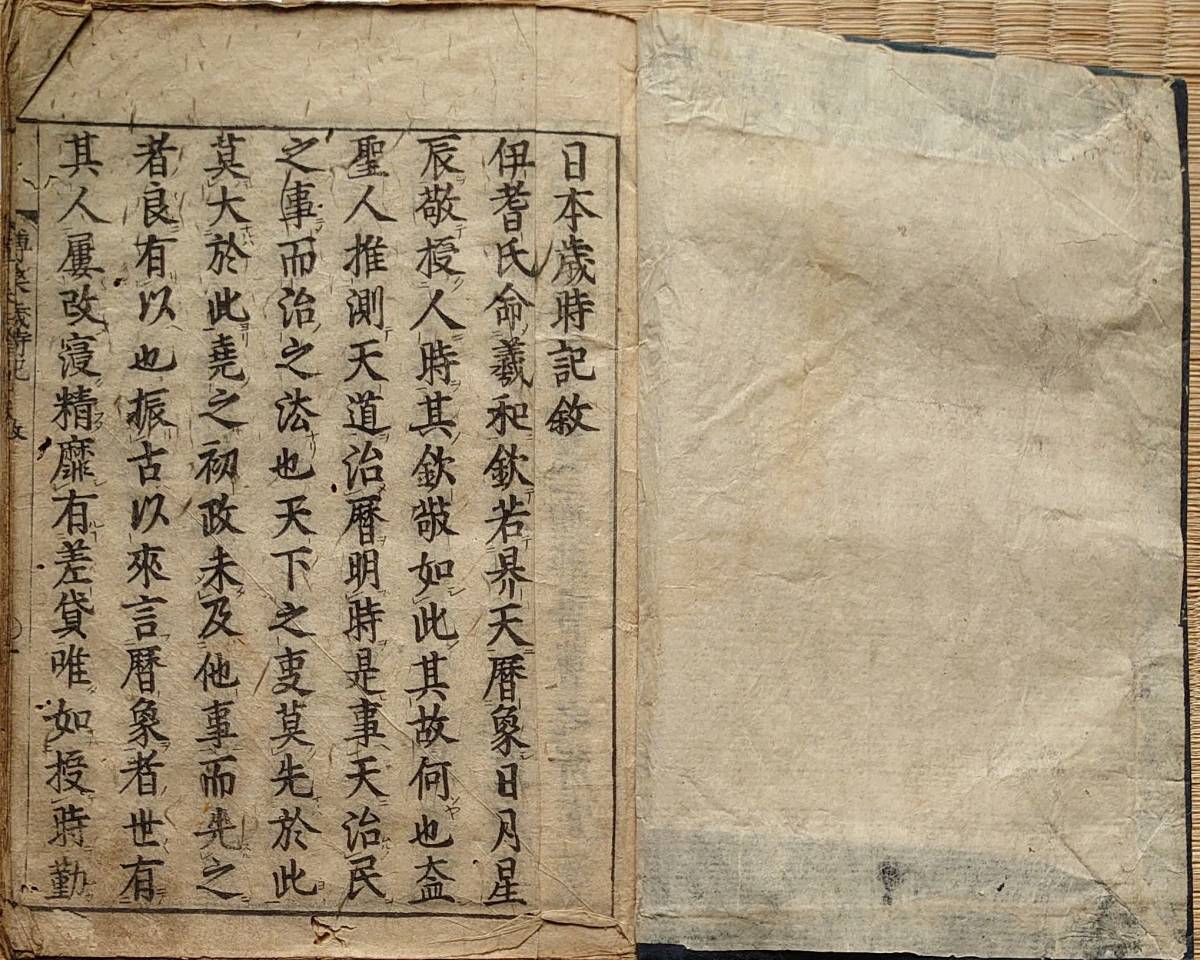 日本歲時記敘
伊耆氏命羲和欽若昦天曆象日月星
辰敬授人時其欽敬如此其故何也盇
聖人推測天道治曆明時是事天治民
之事而治之法也天下之叓莫先於此
莫大於此堯之初政未及他事而先之
者良有以也振古以來言曆象者世有
其人屢改寖精靡有差貸唯如授時勤
歲時記